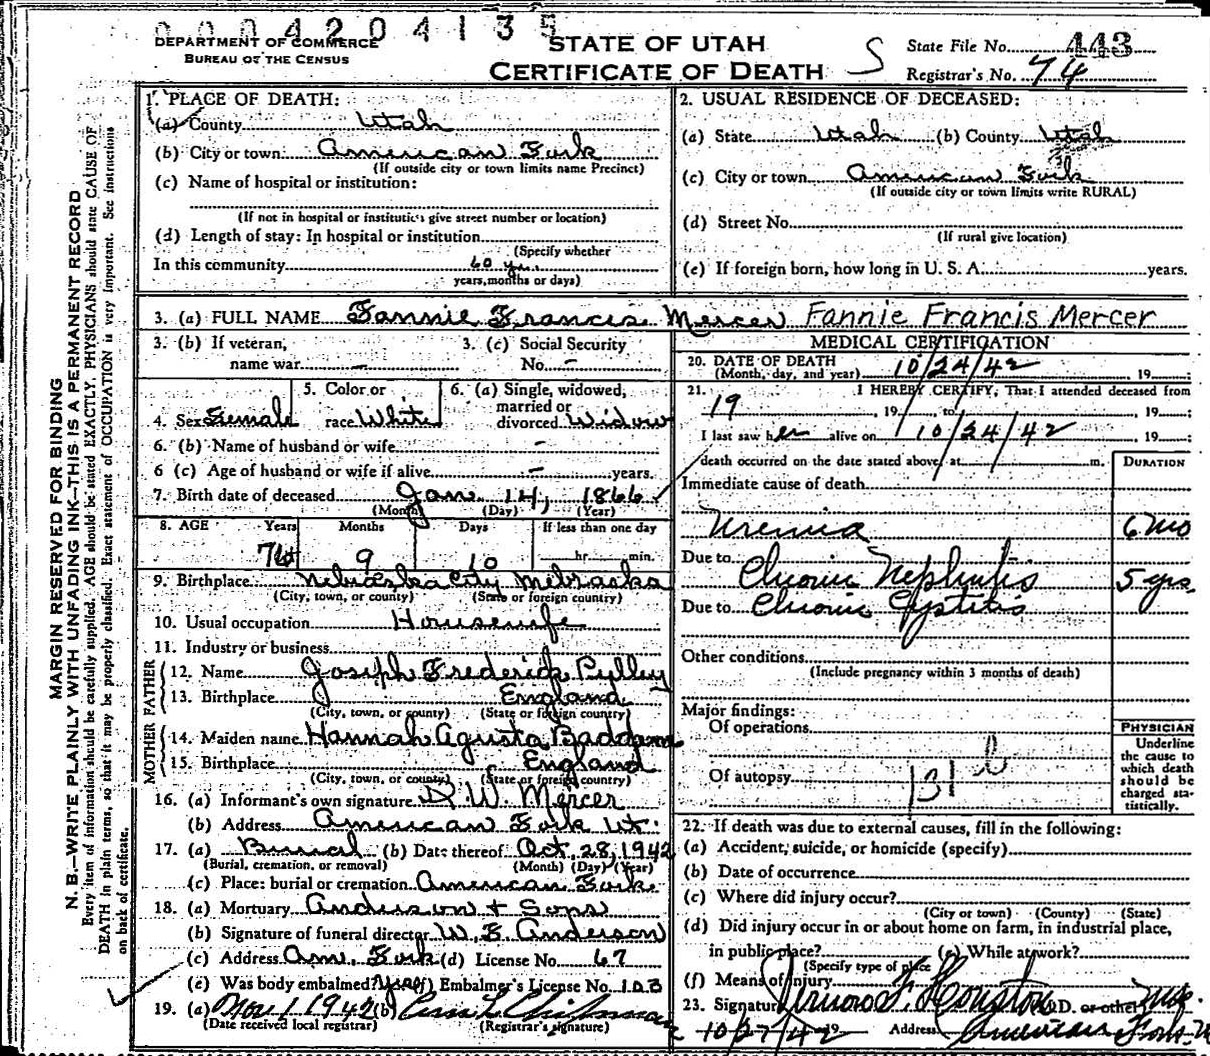 0004204135
DEPARTMENT OF COMMERCE
BUREAU OF THE CENSUS
STATE OF UTAH
CERTIFICATE OF DEATH
S
State File No. 443
Registrar's No. 74
MARGIN RESERVED FOR BINDING
N. B.—WRITE PLAINLY WITH UNFADING INK—THIS IS A PERMANENT RECORD
Every item of information should be carefully supplied. AGE should be stated EXACTLY. PHYSICIANS should state CAUSE OF
DEATH in plain terms, so that it may be properly classified. Exact statement of OCCUPATION is very important. See instructions
on back of certificate.
1. PLACE OF DEATH:
(a) County Utah
(b) City or town: American Fork
(If outside city or town limits name Precinct)
(c) Name of hospital or institution:
(If not in hospital or institution give street number or location)
(d) Length of stay: In hospital or institution
(Specify whether
In this community 60 yrs.
years, months or days)
2. USUAL RESIDENCE OF DECEASED:
(a) State Utah (b) County Utah
(c) City or town American Fork
(If outside city or town limits write RURAL)
(d) Street No.
(If rural give location)
(e) If foreign born, how long in U. S. A. years.
3. (a) FULL NAME Fannie Francis Mercer Fannie Francis Mercer
3. (b) If veteran, name war –
3. (c) Social Security No. –
4. Sex Female
5. Color or race White
6. (a) Single, widowed, married or divorced Widow
6. (b) Name of husband or wife –
6 (c) Age of husband or wife if alive – years.
7. Birth date of deceased Jan. 14, 1866
(Month) (Day) (Year)
8. AGE Years Months Days If less than one day
9 10 hr. min.
9. Birthplace Nebraska City Nebraska
(City, town, or county) (State or foreign country)
10. Usual occupation Housewife
11. Industry or business
FATHER
12. Name Joseph Frederick Pulley
13. Birthplace England
(City, town, or county) (State or foreign country)
MOTHER
14. Maiden name Hannah Agusta Baddams
15. Birthplace England
(City, town, or county) (State or foreign country)
16. (a) Informant's own signature W. Mercer
(b) Address American Fork Ut.
17. (a) Burial (b) Date thereof Oct. 28, 1942
(Burial, cremation, or removal) (Month) (Day) (Year)
(c) Place: burial or cremation American Fork
18. (a) Mortuary Anderson & Sons
(b) Signature of funeral director W. E. Anderson
(c) Address Am. Fork (d) License No. 67
(e) Was body embalmed? Yes (f) Embalmer's License No. 103
19. (a) Nov 1 1942 (b)
(Date received local registrar) (Registrar's signature)
MEDICAL CERTIFICATION
20. DATE OF DEATH
(Month, day, and year) 10/24/42, 19
21. I HEREBY CERTIFY, That I attended deceased from
19, 19 to, 19
I last saw her alive on 10/24/42, 19
death occurred on the date stated above, at m.
DURATION
Immediate cause of death
Uremia 6 mo
Due to Chronic Nephritis 5 yrs.
Due to Chronic Cystitis
Other conditions
(Include pregnancy within 3 months of death)
Major findings:
Of operations
Of autopsy
131 b
PHYSICIAN
Underline
the cause to
which death
should be
charged sta-
tistically.
22. If death was due to external causes, fill in the following:
(a) Accident, suicide, or homicide (specify)
(b) Date of occurrence
(c) Where did injury occur?
(City or town) (County) (State)
(d) Did injury occur in or about home on farm, in industrial place,
in public place? (e) While at work?
(Specify type of place)
(f) Means of injury
23. Signature F. Houston M.D. or other
10/27/42 19 Address American Fork